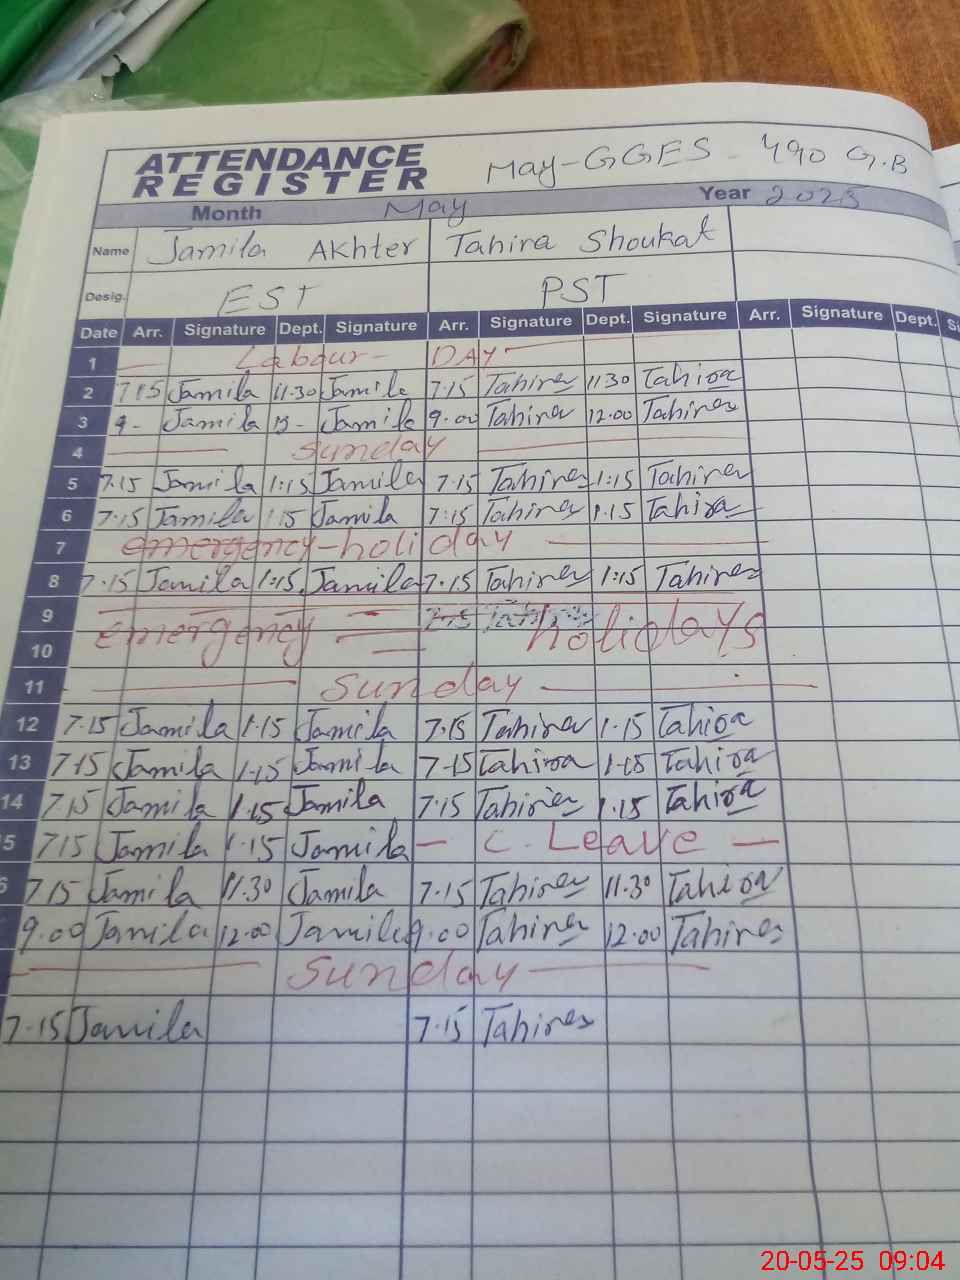 ATTENDANCE
REGISTER
May-GGES - 490 G.B
Month May Year 2025
Name Jamila Akhter Tahira Shoukat
Desig. EST PST
Date Arr. Signature Dept. Signature Arr. Signature Dept. Signature Arr. Signature Dept.
1 Labour - DAY
2 7.15 Jamila 11.30 Jamila 7.15 Tahira 11.30 Tahira
3 9- Jamila Jamila 9.00 Tahira 12.00 Tahira
4 Sunday
5 7.15 Jamila 1:15 Jamila 7.15 Tahira 1:15 Tahira
6 7.15 Jamila 1.15 Jamila 7:15 Tahira 1.15 Tahira
7 emergency-holiday
8 7.15 Jamila 1:15 Jamila 7.15 Tahira 1:15 Tahira
9 7.15 Tahira
10 emergency holidays
11 Sunday
12 7.15 Jamila 1.15 Jamila 7.15 Tahira 1.15 Tahira
13 7.15 Jamila 1.15 Jamila 7.15 Tahira 1.15 Tahira
14 7.15 Jamila 1.15 Jamila 7.15 Tahira 1.15 Tahira
5 7.15 Jamila 1.15 Jamila - C. Leave -
7.15 Jamila 11.30 Jamila 7.15 Tahira 11.30 Tahira
9.00 Jamila 12.00 Jamila 9.00 Tahira 12.00 Tahira
Sunday
7.15 Jamila 7.15 Tahira
20-05-25 09:04